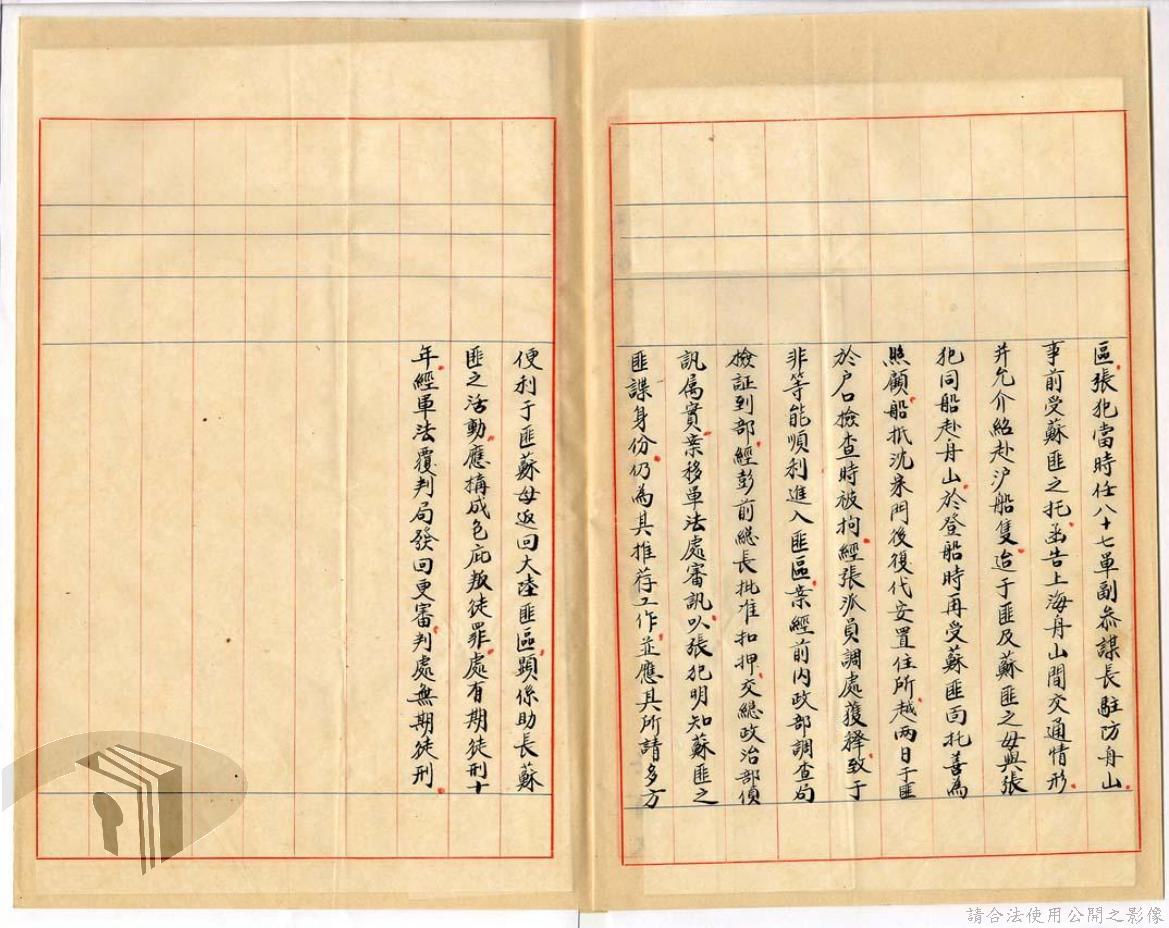 區張犯當時任八十七軍副參謀長駐防舟山
事前受蘇匪之托函告上海舟山間交通情形
并允介紹赴沪船隻迨于匪及蘇匪之母與張
犯同船赴舟山於登船時再受蘇匪面托善為
照顧船抵沈家門後復代安置住所越兩日于匪
於户口檢查時被拘經張派員調處獲釋致于
非等能順利進入匪區案經前內政部調查局
檢証到部經彭前總長批准扣押交總政治部偵
訊屬實案移軍法處審訊以張犯明知蘇匪之
匪諜身份仍為其推荐工作並應其所請多方
便利于匪蘇母返回大陸匪區顯係助長蘇
匪之活動應構成包庇叛徒罪處有期徒刑十
年經軍法覆判局發回更審判處無期徒刑
請合法使用公開之影像